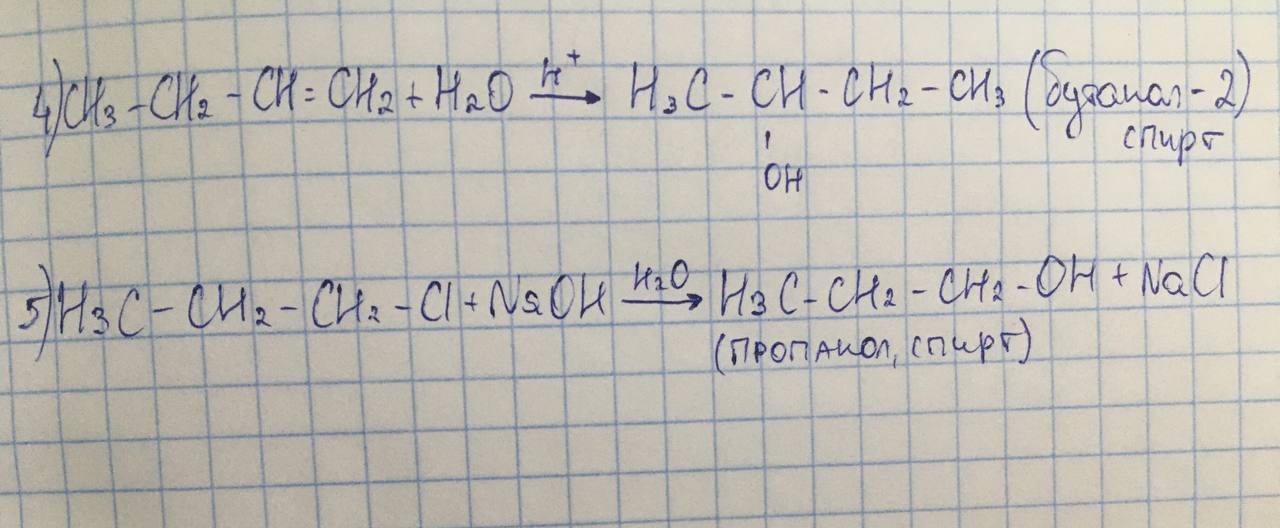 4) CH₃ - CH₂ - CH = CH₂ + H₂O —H⁺→ H₃C - CH - CH₂ - CH₃ (бутанол - 2)
спирт
OH
5) H₃C - CH₂ - CH₂ - Cl + NaOH —H₂O→ H₃C - CH₂ - CH₂ - OH + NaCl
(пропанол, спирт)